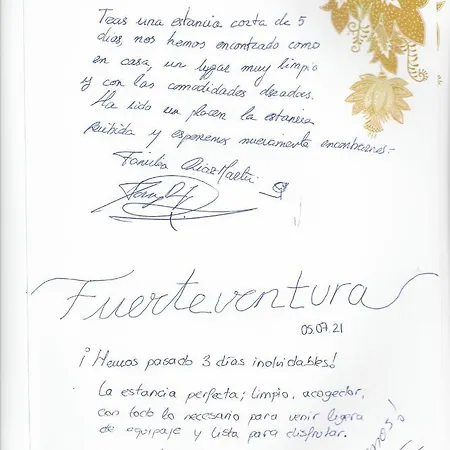 Tras una estancia corta de 5
días, nos hemos encontrado como
en casa, un lugar muy limpio
y con las comodidades deseadas.
Ha sido un placer la estancia
recibida y esperemos nuevamente encontrarnos.-
Familia
Fuerteventura
05.07.21
¡Hemos pasado 3 días inolvidables!
La estancia perfecta; limpio, acogedor,
con todo lo necesario para venir ligera
de equipaje y lista para disfrutar.